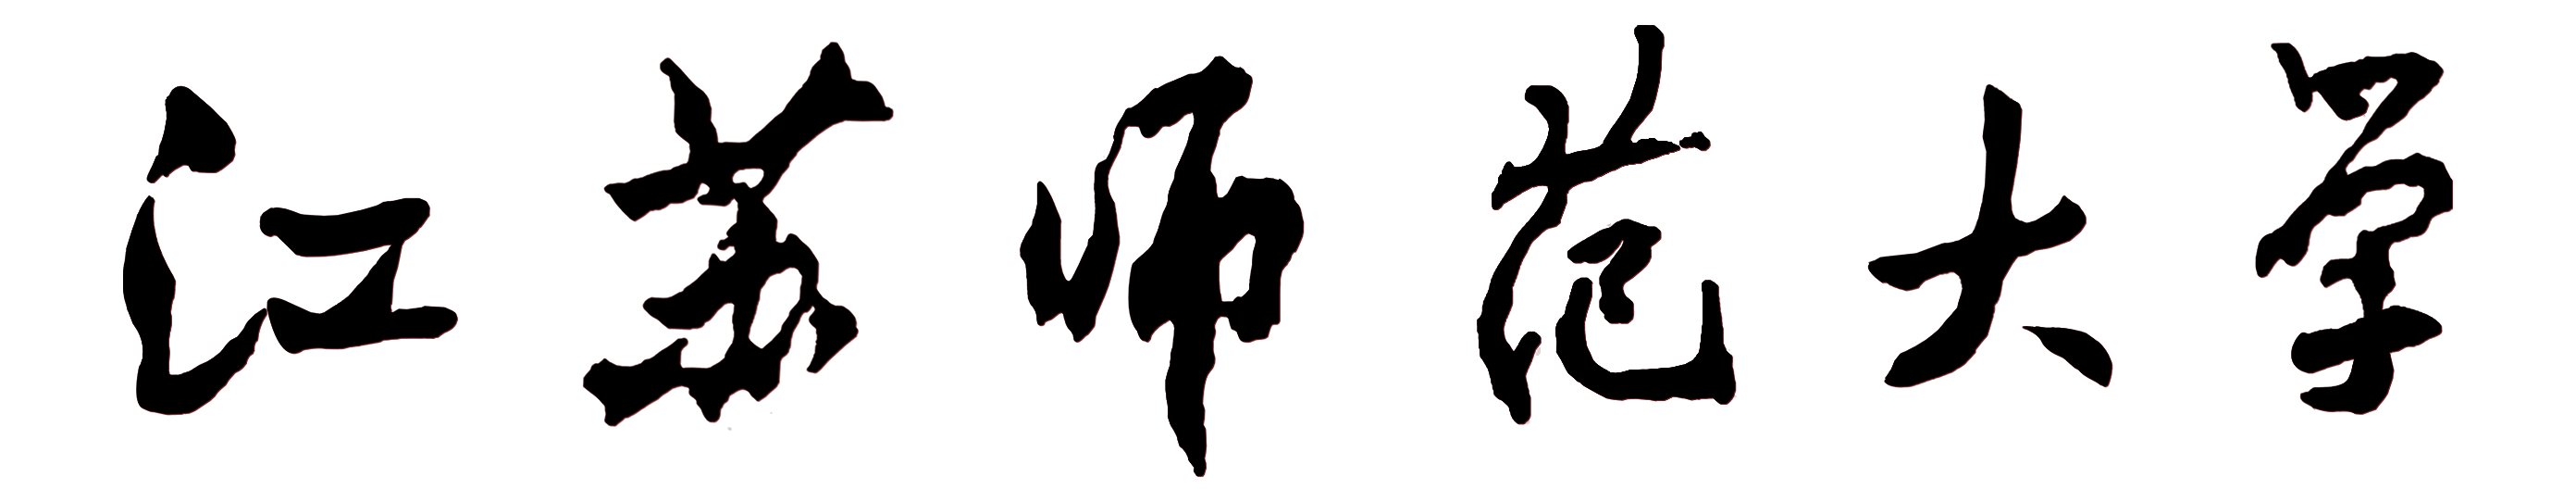 江苏师范大学